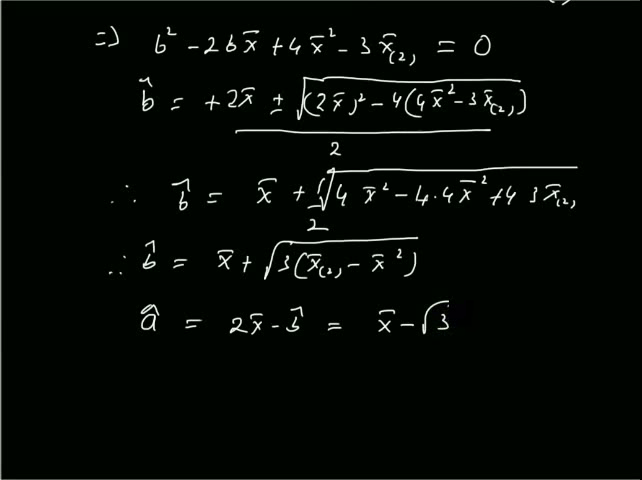 =) b² - 2b x̄ + 4x̄² - 3x̄₍₂₎ = 0
b̂ = +2x̄ ± √((2x̄)² - 4(4x̄² - 3x̄₍₂₎)) / 2
∴ b̂ = x̄ + 1/2 √(4 x̄² - 4·4x̄² + 4 3x̄₍₂₎)
∴ b̂ = x̄ + √(3(x̄₍₂₎ - x̄²))
â = 2x̄ - b̂ = x̄ - √3